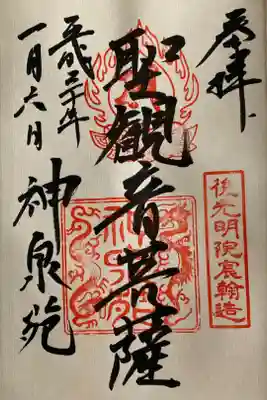 奉拝
後光明院宸翰造
聖観音菩薩
平成三十年
一月六日
神泉苑